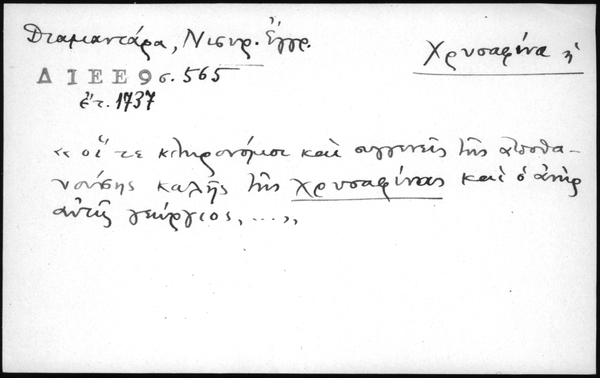 Διαμαντάρα, Νισυρ. Ἔγγρ.
Χρυσαφίνα ἡ
ΔΙΕΕ 9 σ. 565
ἔτ. 1737
« οἵ τε κληρονόμοι καὶ συγγενεῖς τῆς ἀποθα-
νούσης καλῆς τῆς Χρυσαφίνας καὶ ὁ ἀνὴρ
αὐτῆς γεώργιος, ...»,